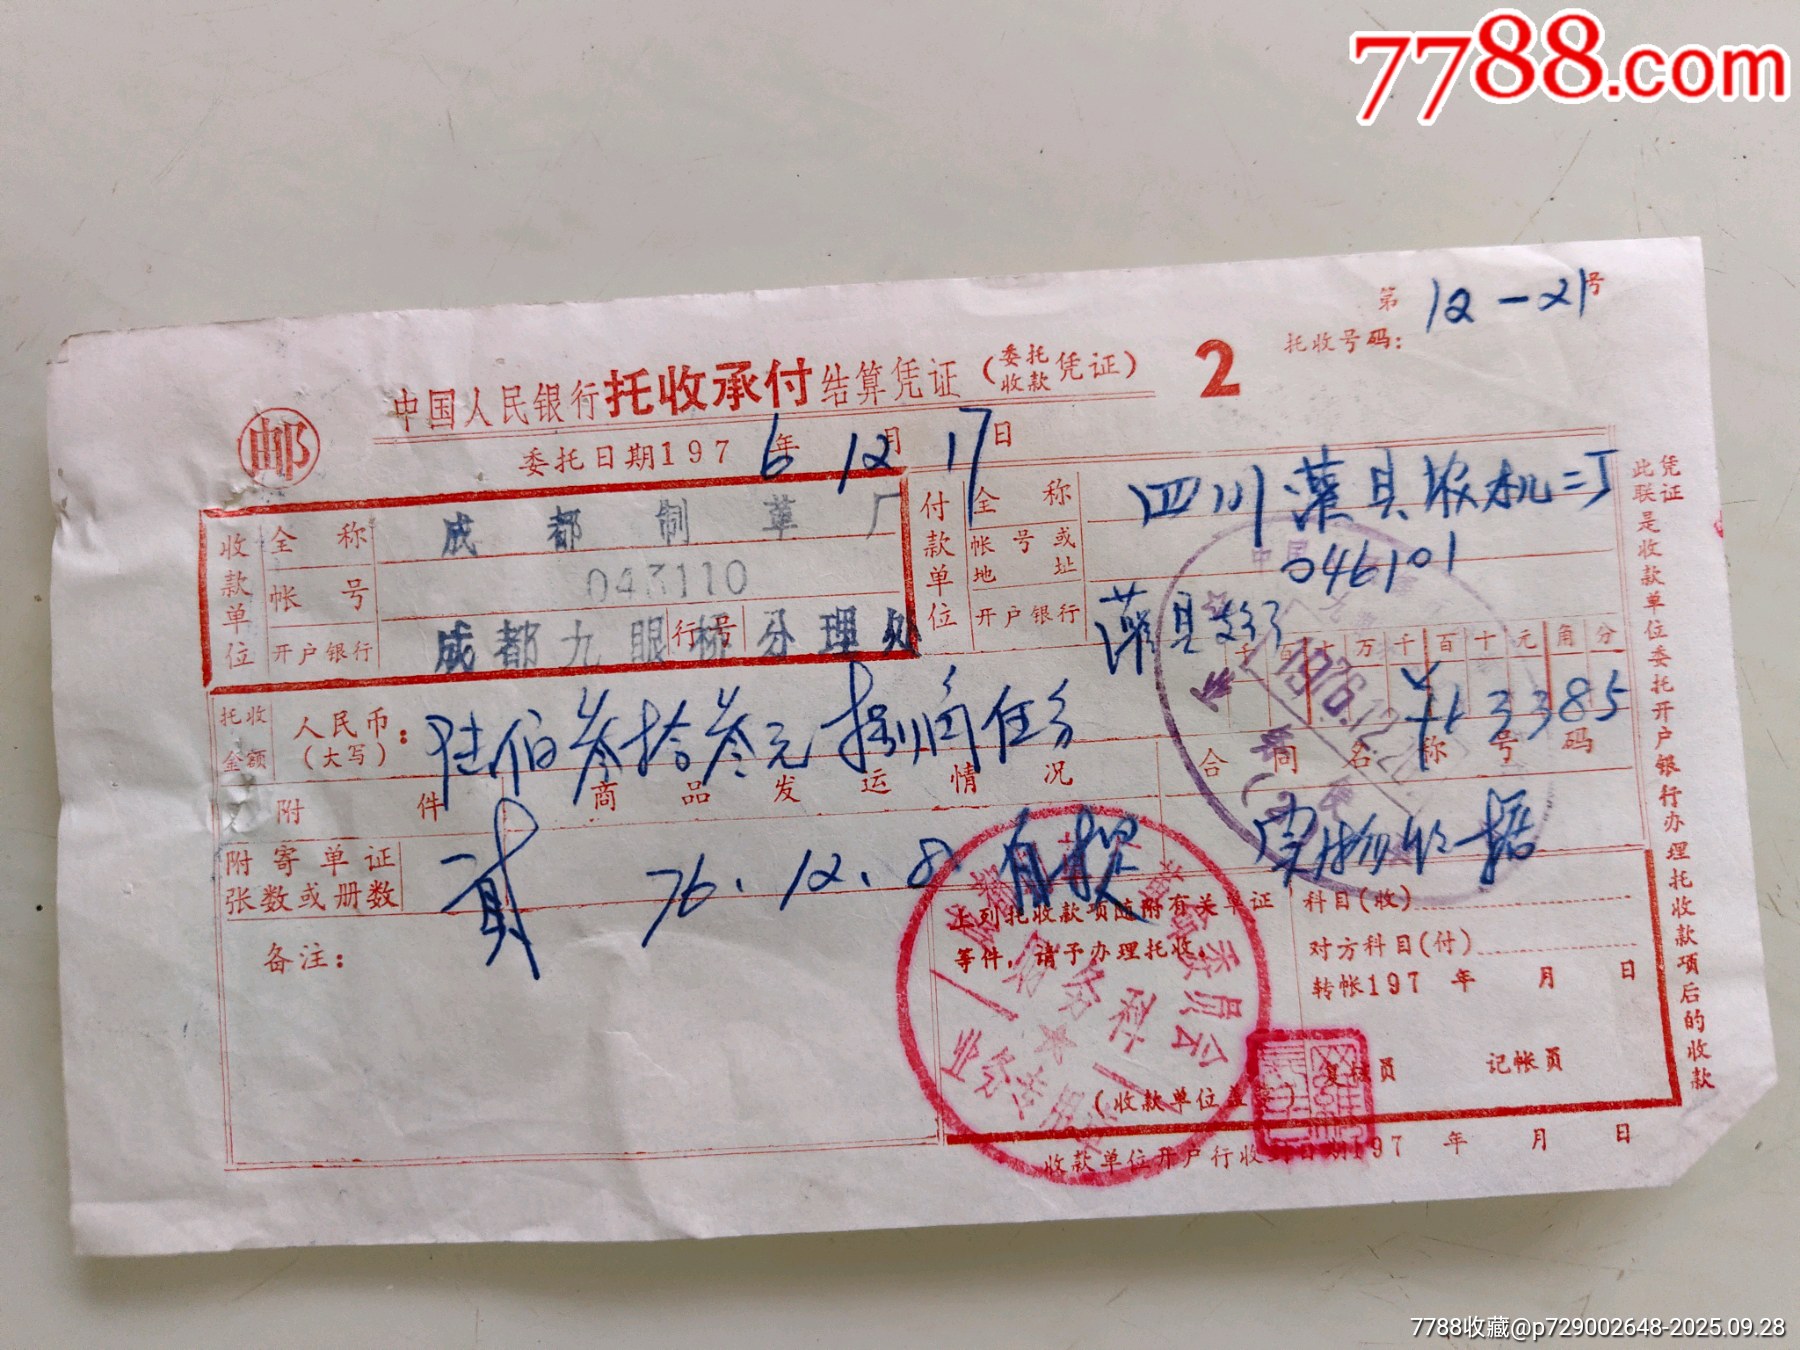 7788.com
第12-21号
托收号码:
邮
中国人民银行托收承付结算凭证(委托收款凭证) 2
委托日期1976年12月17日
收款单位
全称 成都制革厂
帐号 043110
开户银行 成都九眼桥分理处
行号
付款单位
全称 四川灌县农机二厂
帐号或地址 046101
开户银行 灌县支行
千百十万千百十元角分
¥63385
托收金额
人民币(大写): 陆佰叁拾叁元捌角伍分
附件
商品发运情况
合同名称号码
附寄单证张数或册数
76.12.8.自提
实物收据
备注:
上列托收款项随附有关单证等件,请予办理托收。
(收款单位盖章)
科目(收)
对方科目(付)
转帐197 年 月 日
复核员 记帐员
收款单位开户行收到日期197 年 月 日
此联是收款单位委托开户银行办理托收款项后的收款凭证
财务科
业务专用章
7788收藏@p729002648-2025.09.28